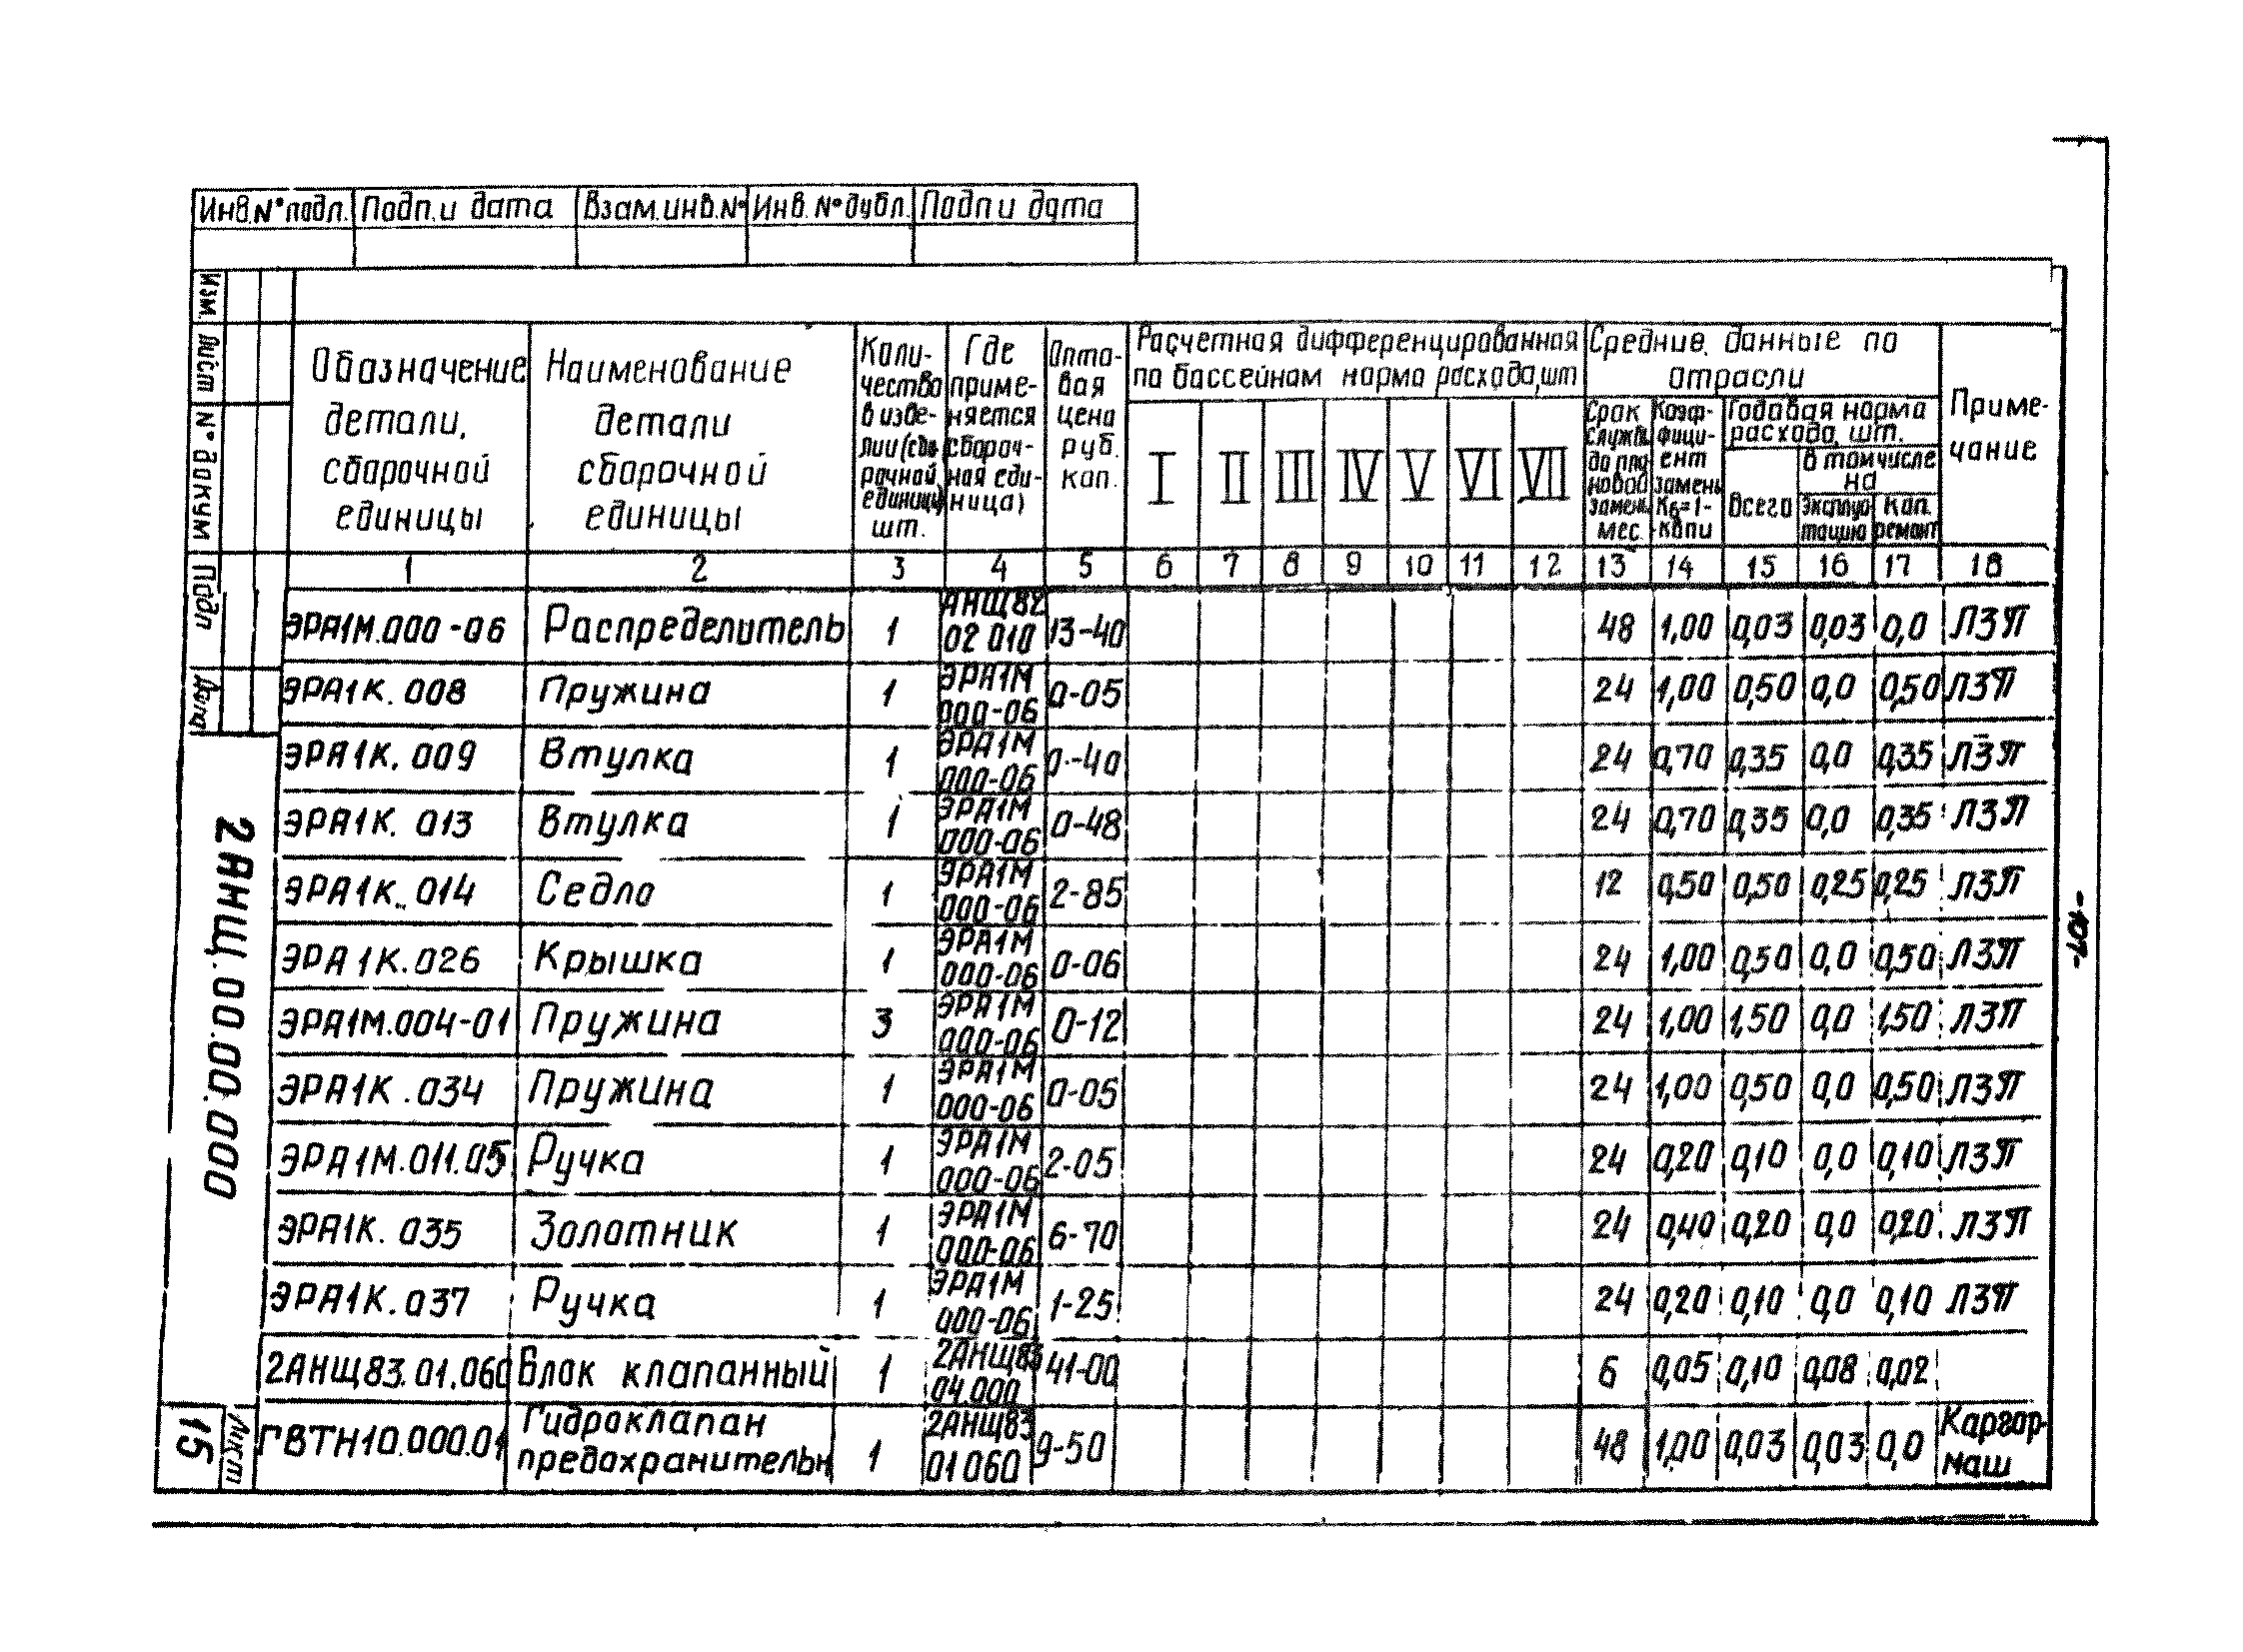 Инв.№ подл. Подп. и дата Взам. инв. № Инв. № дубл. Подп и дата
Изм. Лист № докум Подп Дата
Обозначение детали, сборочной единицы
Наименование детали сборочной единицы
Коли-
чество
в изде-
лии (сбо
рочной
единицы)
шт.
Где
приме-
няется
сбороч-
ная еди-
ница)
Опто-
вая
цена
руб.
коп.
Расчетная дифференцированная
по бассейнам норма расхода, шт
I II III IV V VI VII
Средние данные по
отрасли
Срок
службы
до пла
новой
замены
мес.
Коэф-
фици-
ент
замены
Кб=1-
-капи
Годовая норма
расхода, шт.
Всего
в том числе
на
эксплуа
тацию
кап.
ремонт
Приме-
чание
1 2 3 4 5 6 7 8 9 10 11 12 13 14 15 16 17 18
ЭРА1М.000-06 Распределитель 1 АНЩ82 02 010 13-40 48 1,00 0,03 0,03 0,0 ЛЗП
ЭРА1К.008 Пружина 1 ЭРА1М 000-06 0-05 24 1,00 0,50 0,0 0,50 ЛЗП
ЭРА1К.009 Втулка 1 ЭРА1М 000-06 0-40 24 0,70 0,35 0,0 0,35 ЛЗП
ЭРА1К.013 Втулка 1 ЭРА1М 000-06 0-48 24 0,70 0,35 0,0 0,35 ЛЗП
ЭРА1К.014 Седло 1 ЭРА1М 000-06 2-85 12 0,50 0,50 0,25 0,25 ЛЗП
ЭРА1К.026 Крышка 1 ЭРА1М 000-06 0-06 24 1,00 0,50 0,0 0,50 ЛЗП
ЭРА1М.004-01 Пружина 3 ЭРА1М 000-06 0-12 24 1,00 1,50 0,0 1,50 ЛЗП
ЭРА1К.034 Пружина 1 ЭРА1М 000-06 0-05 24 1,00 0,50 0,0 0,50 ЛЗП
ЭРА1М.011.05 Ручка 1 ЭРА1М 000-06 2-05 24 0,20 0,10 0,0 0,10 ЛЗП
ЭРА1К.035 Золотник 1 ЭРА1М 000-06 6-70 24 0,40 0,20 0,0 0,20 ЛЗП
ЭРА1К.037 Ручка 1 ЭРА1М 000-06 1-25 24 0,20 0,10 0,0 0,10 ЛЗП
2АНЩ83.01.060 Блок клапанный 1 2АНЩ83 04.000 41-00 6 0,05 0,10 0,08 0,02
ГВТН10.000.01 Гидроклапан предохранительн 1 2АНЩ83 01 060 9-50 48 1,00 0,03 0,03 0,0 Каргор-
маш
2АНЩ.00.00.000
Лист
15
-107-